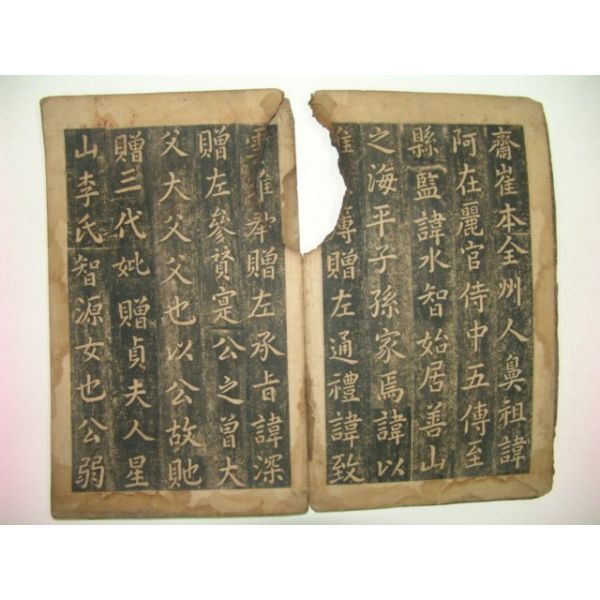 齋崔本全州人鼻祖諱
阿在麗官侍中五傳至
縣監諱水智始居善山
之海平子孫家焉諱以
傳贈左通禮諱致
雲雄訸贈左承旨諱深
贈左參贊寔公之曾大
父大父父也以公故貤
贈三代妣贈貞夫人星
山李氏智源女也公弱